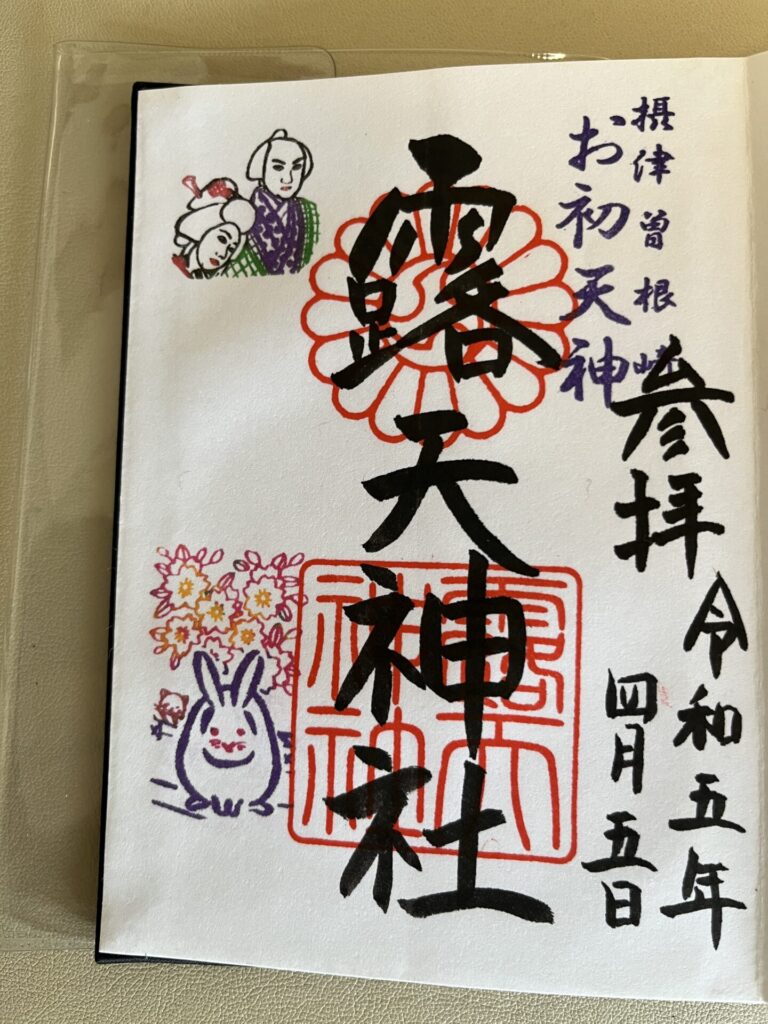 摂津曽根崎
お初天神
参拝
令和五年
四月五日
露天神社
露天神社